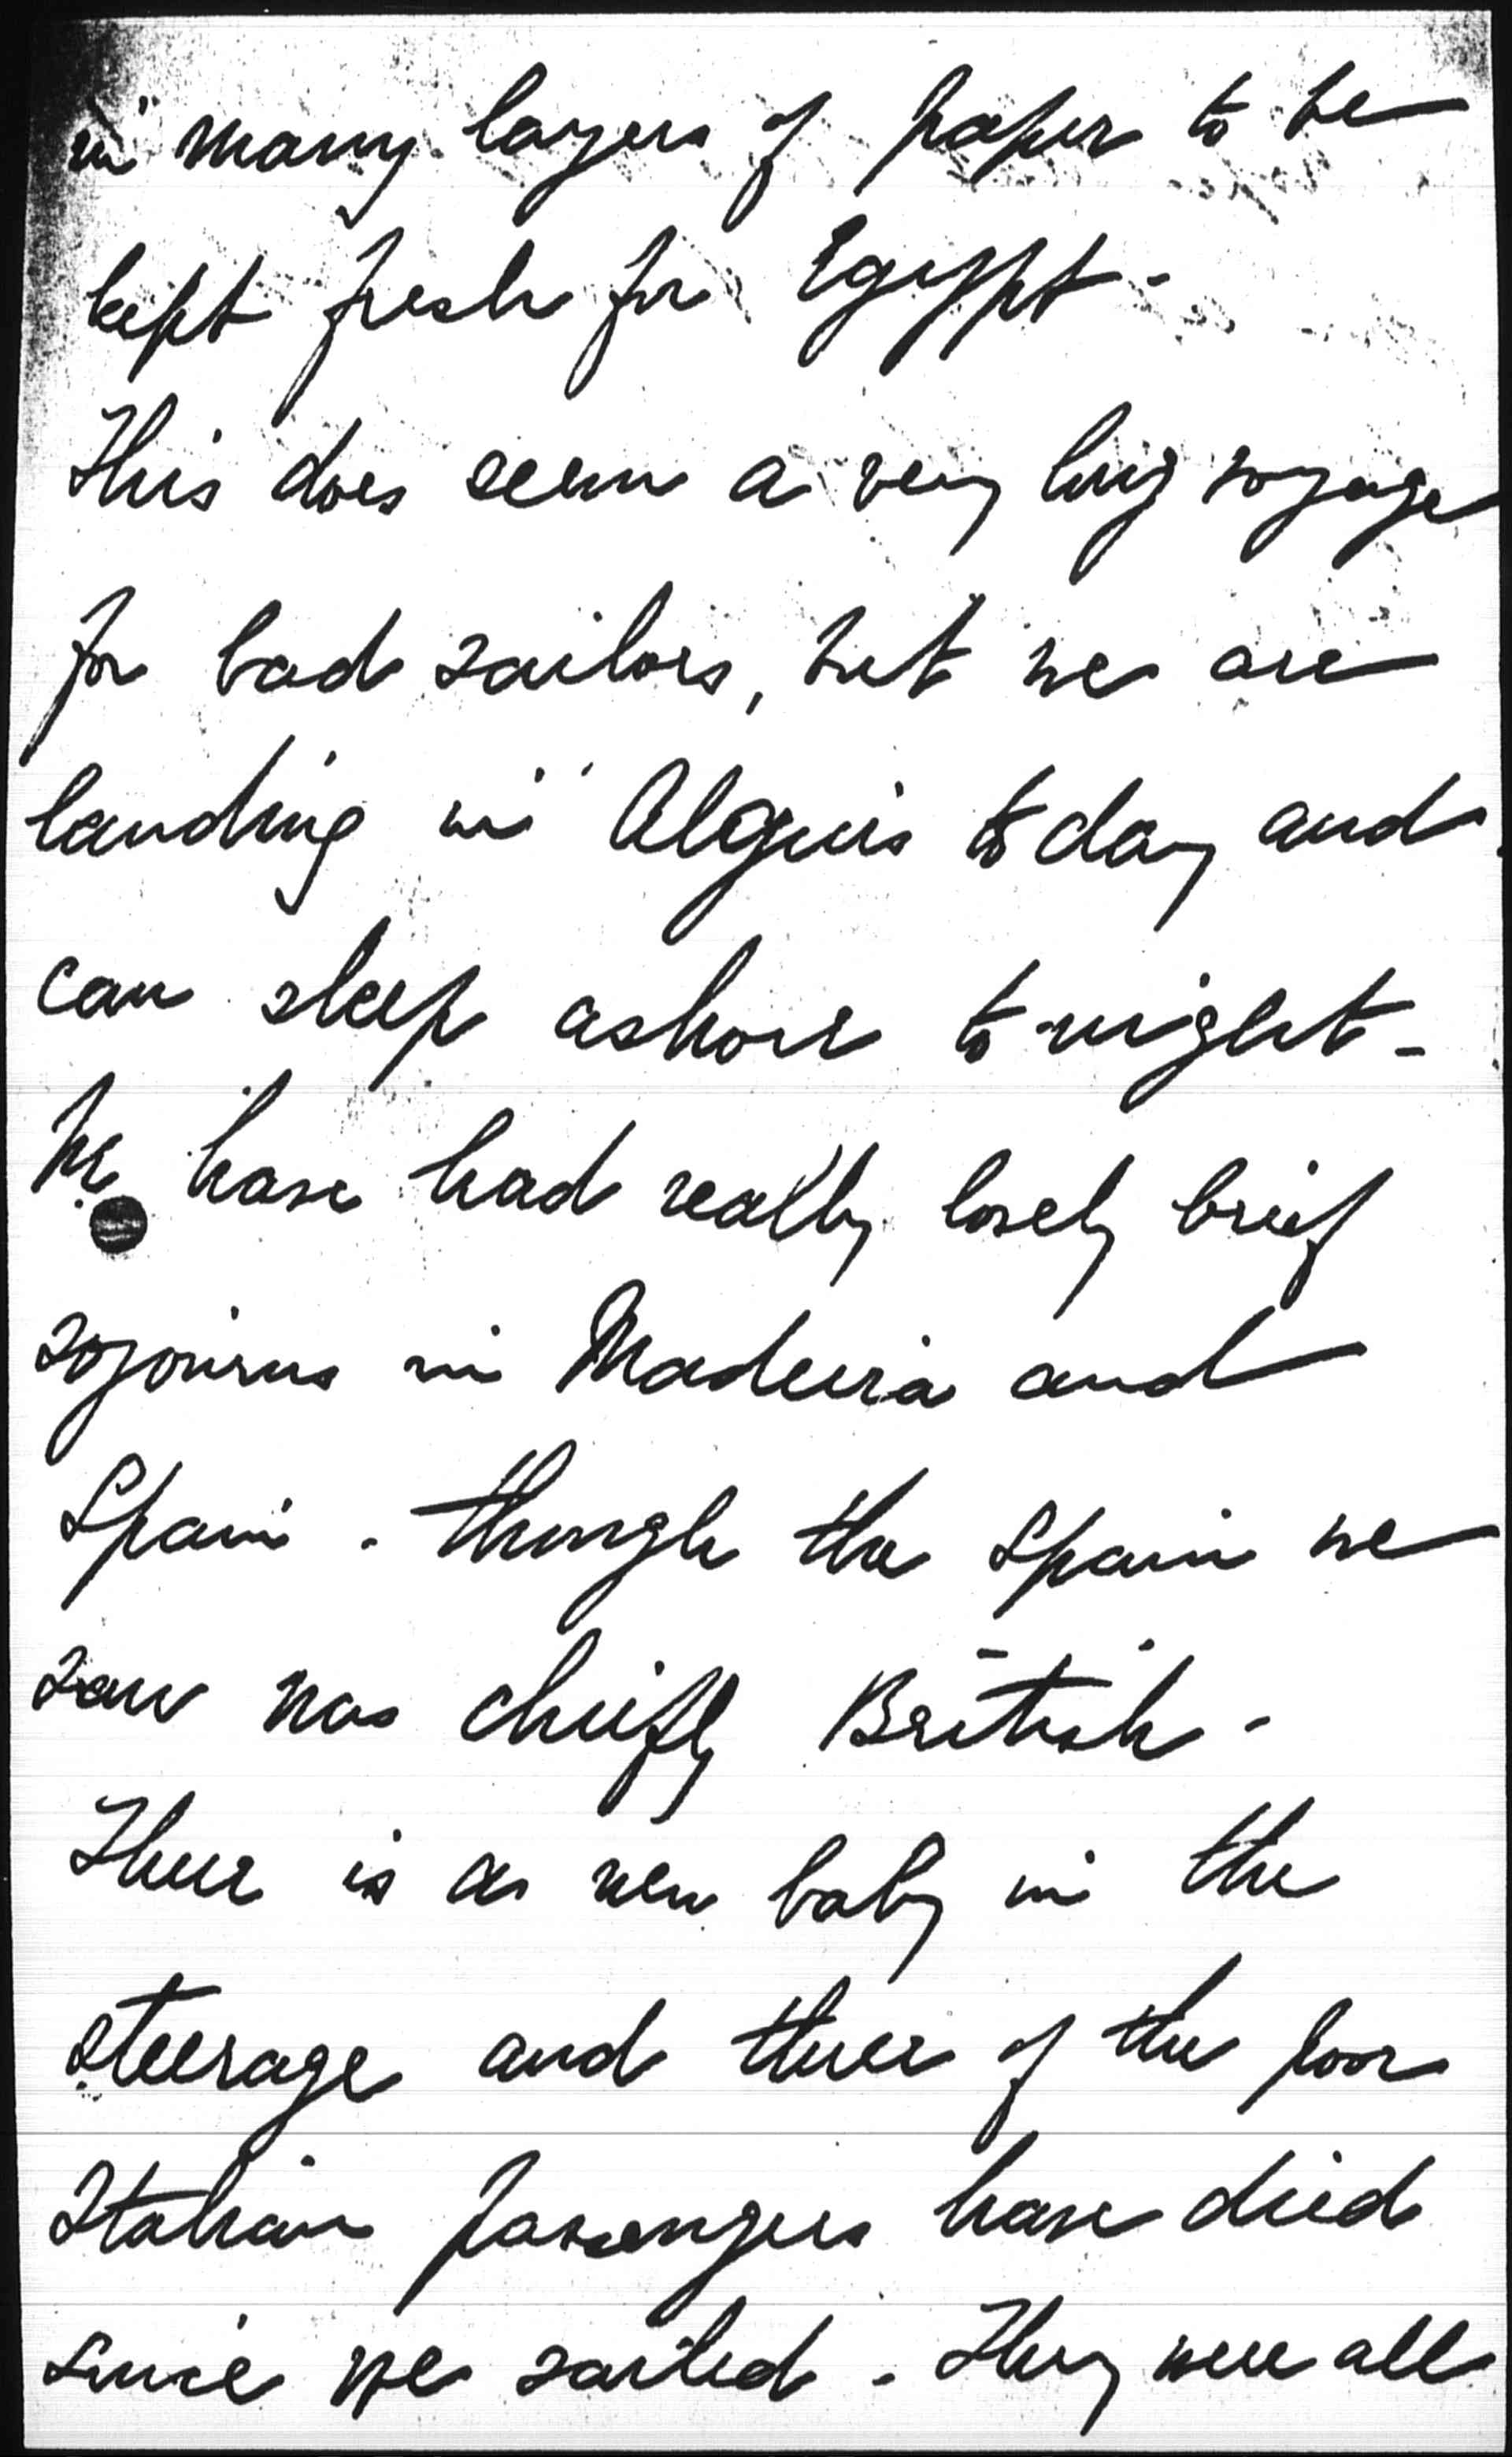 in many layers of paper to be
kept fresh for Egypt -
This does seem a very long voyage
for bad sailors, but we are
landing in Algiers to day and
can sleep ashore to-night -
We have had really lovely brief
sojourns in Madeira and
Spain - though the Spain we
saw was chiefly British -
There is a new baby in the
steerage and three of the poor
Italian passengers have died
since we sailed - They were all